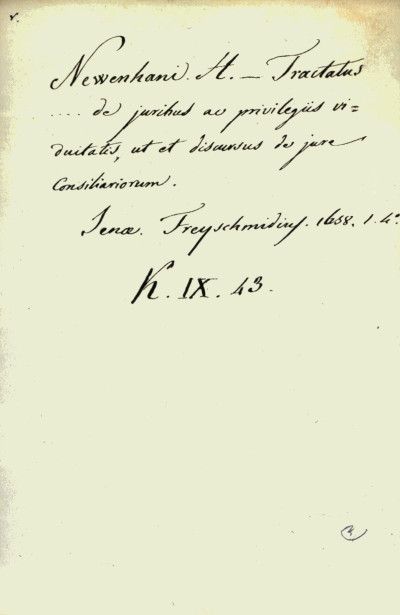 Newenhani. H. — Tractatus
.... de juribus ac privilegiis vi=
duitatis, ut et discursus de jure
Consiliariorum.
Jenæ. Freyschmidius. 1658. 1. 4°.
K. IX. 43.